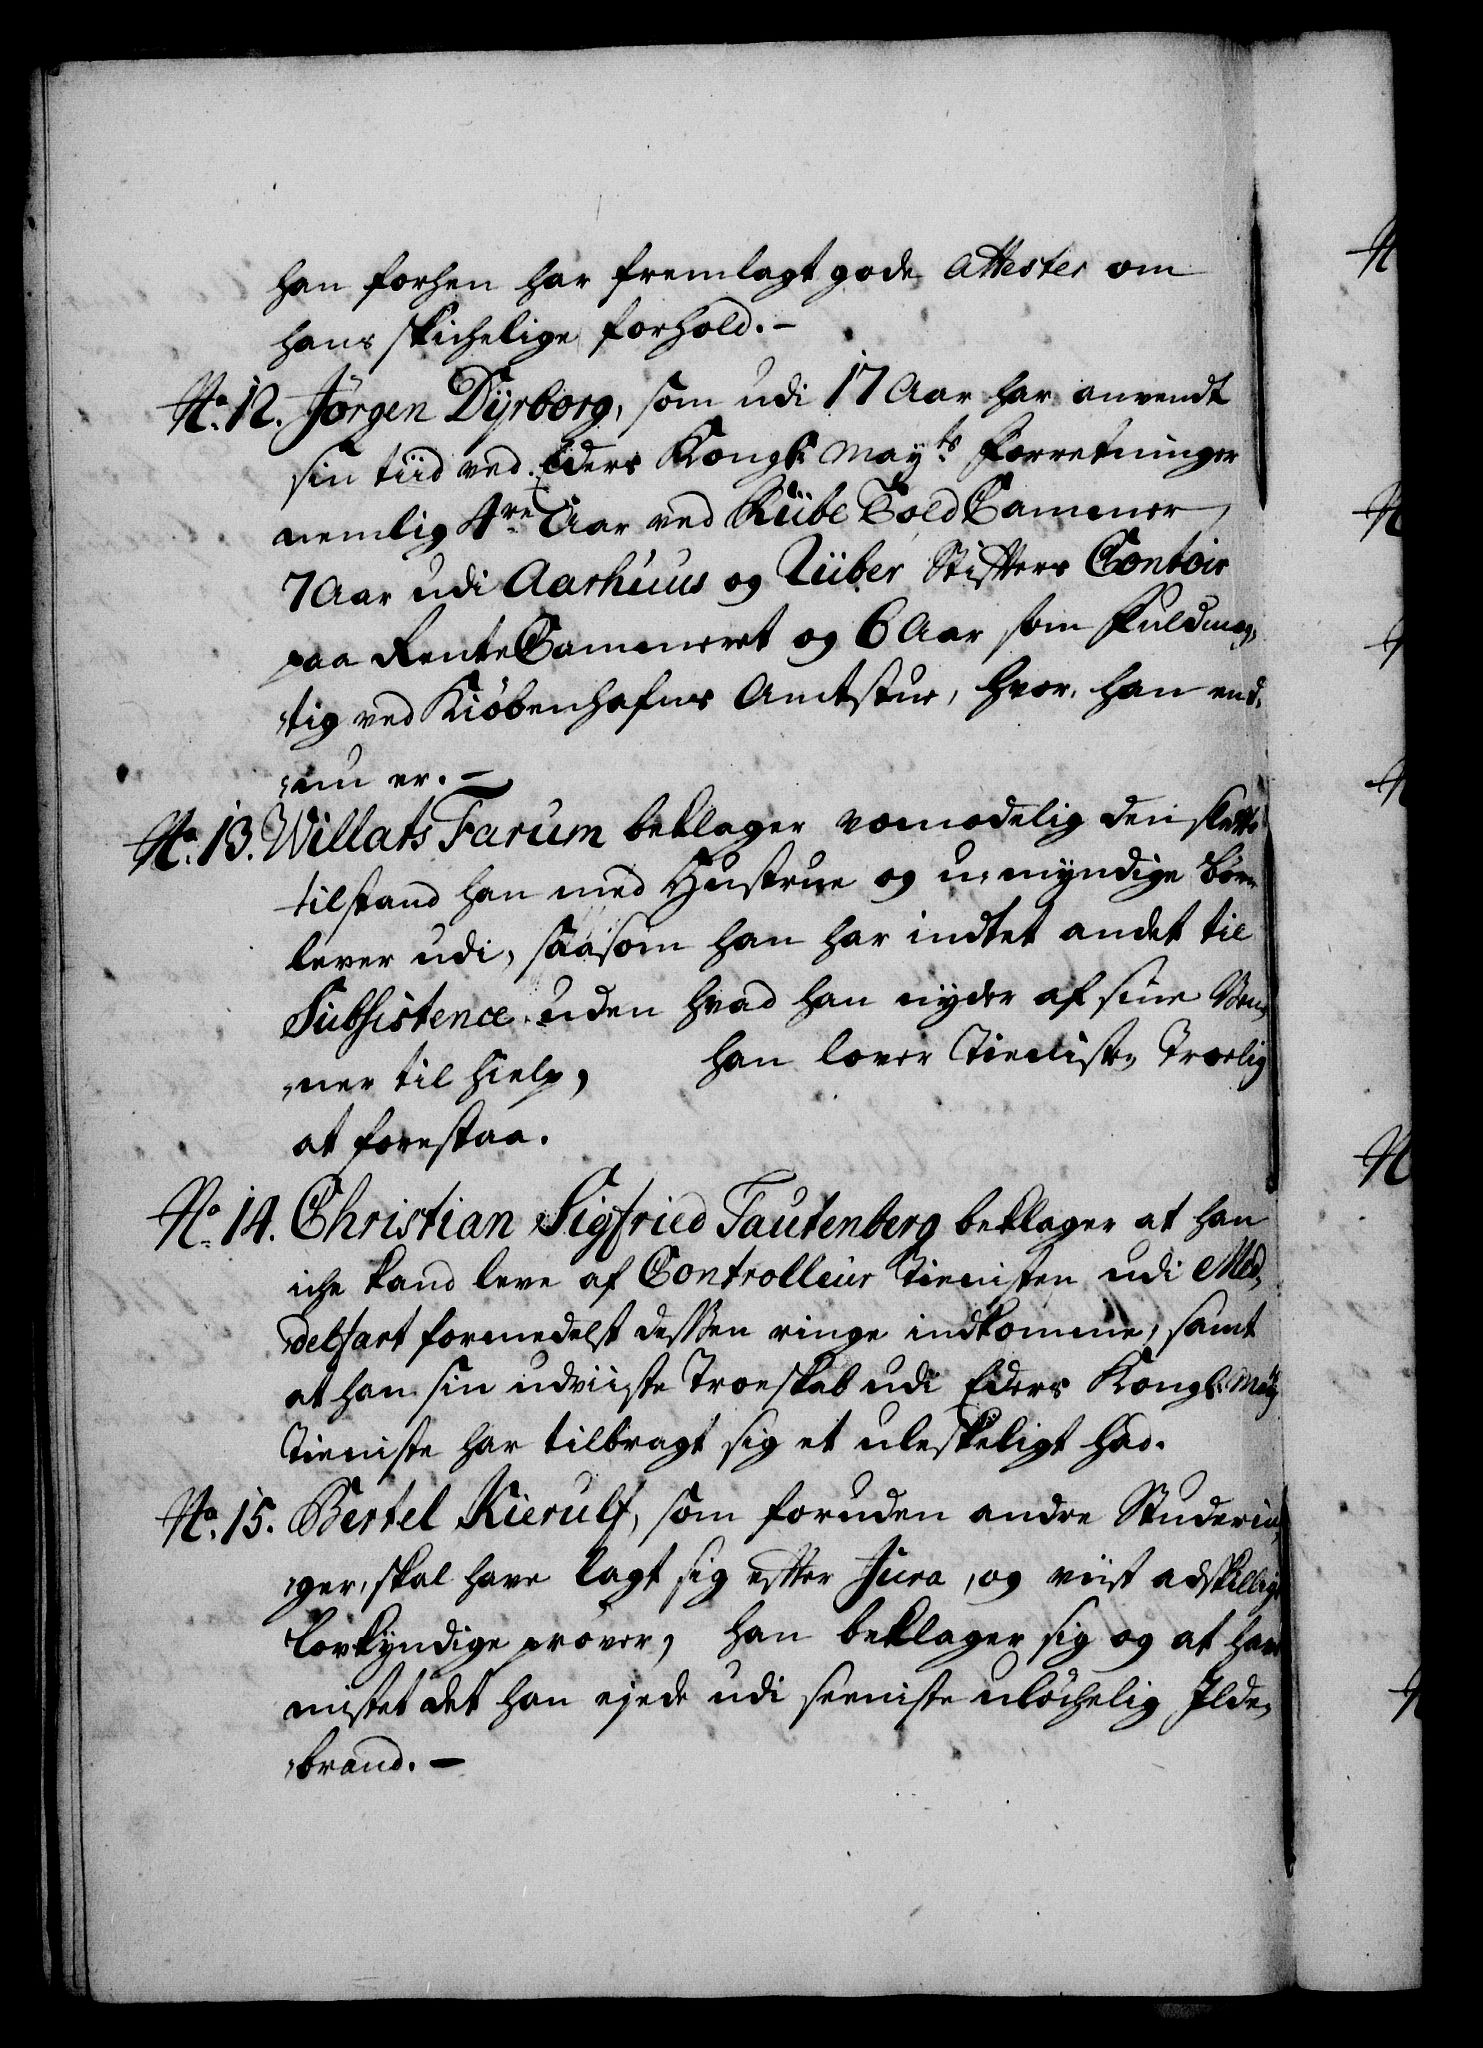 han forhen har fremlagt gode Attester om
hans skichelige forhold. —
No. 12. Jørgen Dyrborg, som udi 17 Aar har anvendt
sin tiid ved Eders Kongl: Mayts forretninger
nemlig 4re Aar ved Riibe Told Cammer
7 Aar udi Aarhuus og Riiber Stifters Contoir
paa Rente Cammeret og 6 Aar som fuldmæg,
,tig ved Kiöbenhafns Amtstue, hvor han end,
,nu er. —
No. 13. Willats Farum beklager vemodelig den slette
tilstand han med Hustrue og u-myndige børn
lever udi, saasom han har indtet andet til
Subsistence uden hvad han nyder af sine Ven,
,ner til hielp, han lover Tienisten Troelig
at forestaa.
No. 14. Christian Sigfried Tautenberg beklager at han
iche kand leve af Controlleur Tienisten udi Med,
,delfart formedelst dessen ringe indkomme, samt
at han sin udviiste Troeskab udi Eders Kongl: May
Tieniste har tilbragt sig et uleskeligt had.
No. 15. Bertel Kierulf, som foruden andre Studerin,
,ger, skal have lagt sig efter Jura, og viist adskillige
lovkyndige prøver, han beklager sig og at have
mistet det han ejede udi seeniste ulöchelig Ilde,
,brand. —